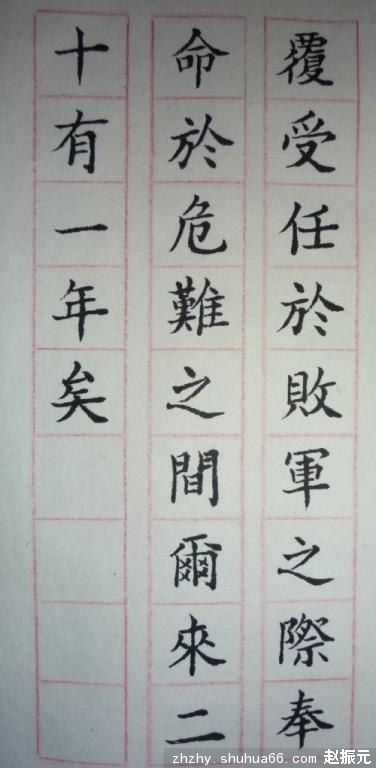 覆受任於敗軍之際奉
命於危難之間爾來二
十有一年矣
zhzhy.shuhua66.com 赵振元